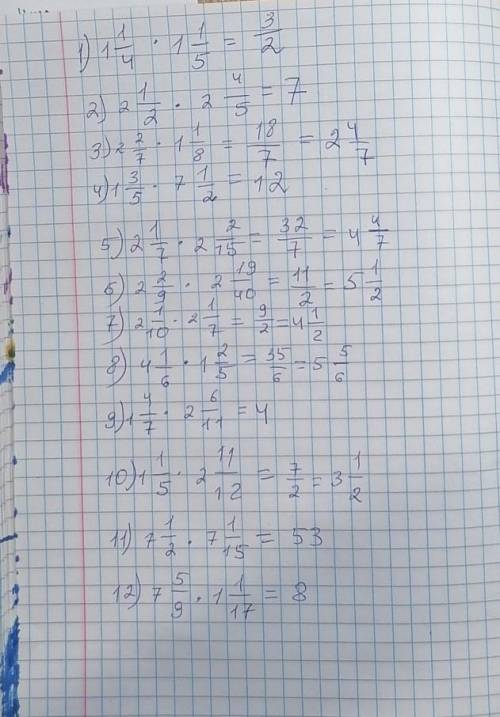 1) 1 1/4 · 1 1/5 = 3/2
2) 2 1/2 · 2 4/5 = 7
3) 2 2/7 · 1 1/8 = 18/7 = 2 4/7
4) 1 3/5 · 7 1/2 = 12
5) 2 1/7 · 2 2/15 = 32/7 = 4 4/7
6) 2 2/9 · 2 19/40 = 11/2 = 5 1/2
7) 2 1/10 · 2 1/7 = 9/2 = 4 1/2
8) 4 1/6 · 1 2/5 = 35/6 = 5 5/6
9) 1 4/7 · 2 6/11 = 4
10) 1 1/5 · 2 11/12 = 7/2 = 3 1/2
11) 7 1/2 · 7 1/15 = 53
12) 7 5/9 · 1 1/17 = 8